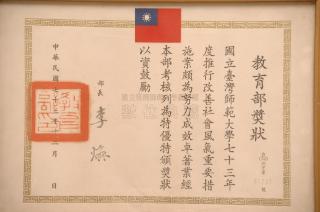 教育部獎狀
國立臺灣師範大學七十三年
度推行改善社會風氣重要措
施業頗為努力成效卓著業經
本部考核列為特優特頒獎狀
以資鼓勵
部長 李煥
中華民國
月 日